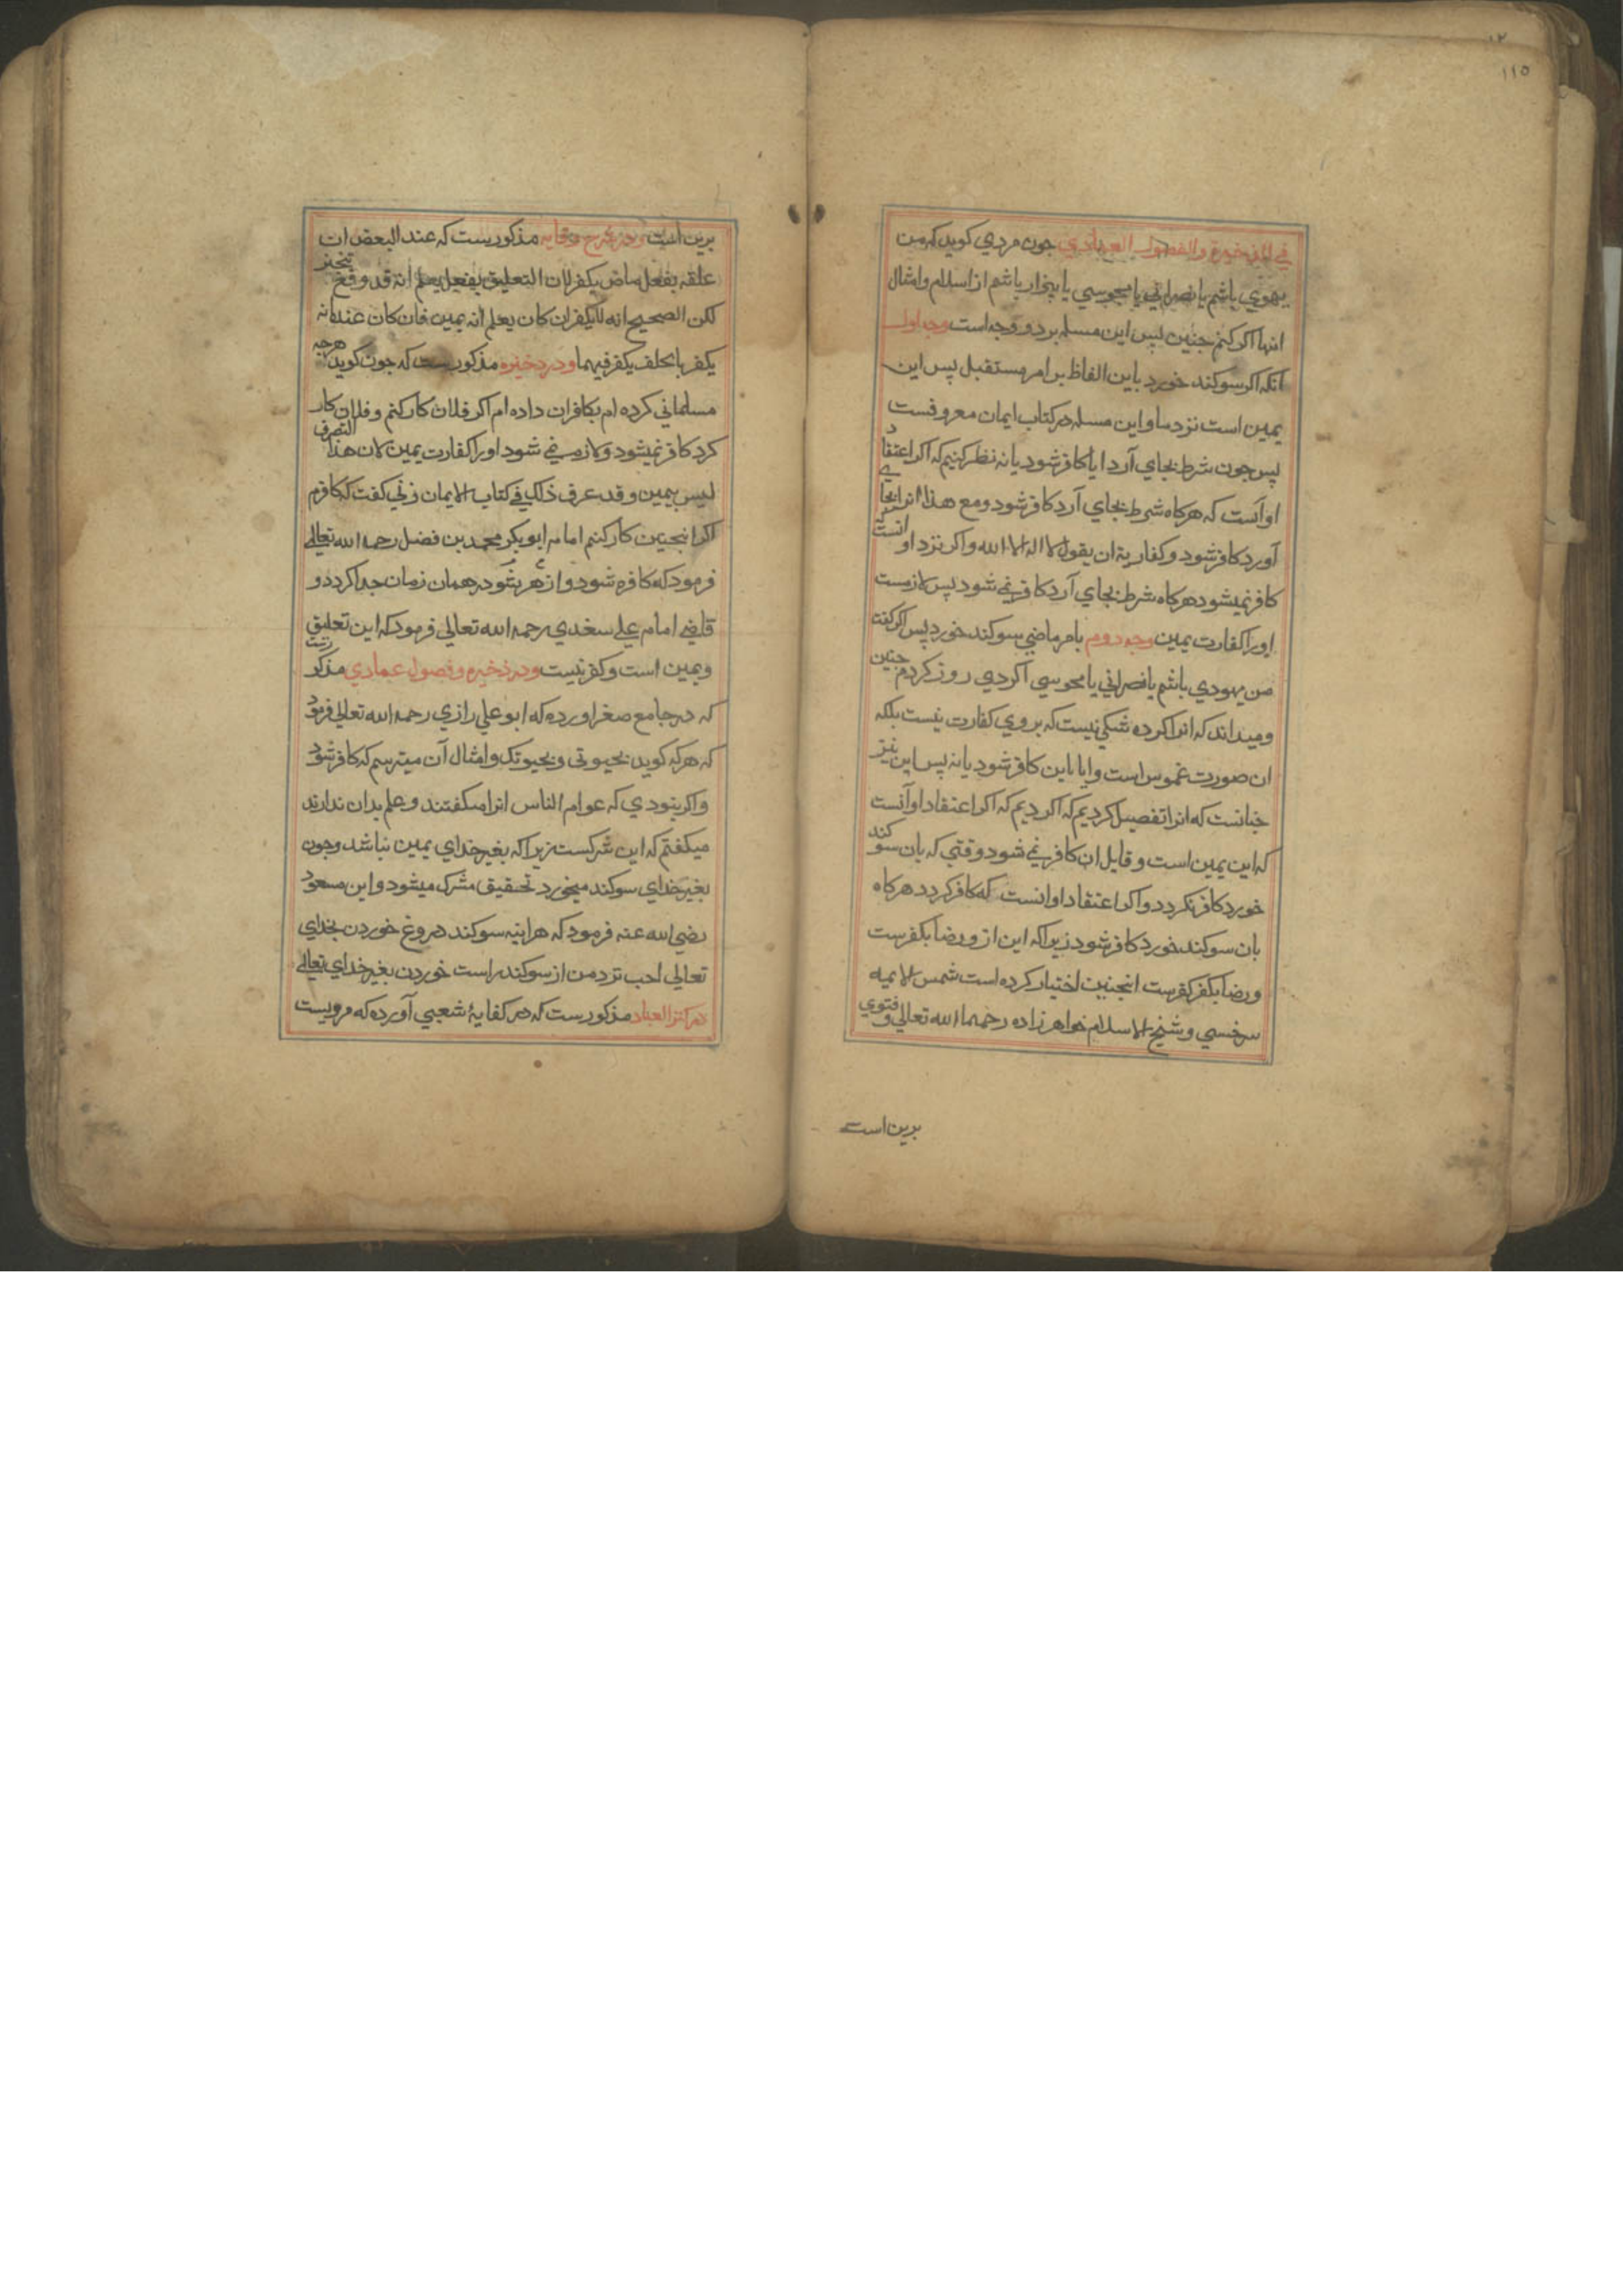 ١١٥
في الذخيرة والفصول العمادي جون مردي كويد كه من
يهودي باشم يا نصراني يا مجوسي يا بيزار باشم از اسلام وامثال
انها اكر كنم جنين پس اين مسله بر دو وجه است وجه اول
آنكه اكر سوكند خورد باين الفاظ بر امر مستقبل پس اين
يمين است نزد ما واين مسله در كتاب ايمان معروفست
پس جون شرط بجاي آرد ايا كافر شود يا نه نظر كنيم كه اكر اعتقاد
او آنست كه هركاه شرط بجاي آرد كافر شود ومع هذا انرا بجاي
آورد كافر شود وكفاريه ان يقول لا اله الا الله واكر نزد او انست كه
كافر نميشود هركاه شرط بجاي آرد كافر نمي شود پس لازمست
اورا كفارت يمين وجه دوم بامر ماضي سوكند خورد پس اكر كفت
من يهودي باشم يا نصراني يا مجوسي اكر دي روز كردم جنين
وميداند كه انرا كرده شكي نيست كه بروي كفارت نيست بلكه
ان صورت غموس است وايا باين كافر شود يا نه پس اين نيز
جنانست كه انرا تفصيل كرديم كه اكر ديم كه اكر اعتقاد او آنست
كه اين يمين است وقايل ان كافر نمي شود وقتي كه بان سوكند
خورد كافر نكردد واكر اعتقاد او انست كه كافر كردد هركاه
بان سوكند خورد كافر شود زيرا كه اين از و رضا بكفرست
ورضا بكفر كفرست انجنين اختيار كرده است شمس الايمه
سرخسي وشيخ الاسلام خواهر زاده رحمهما الله تعالي وفتوي
برين است
برين است ودر شرح وقايه مذكورست كه عند البعض ان
علقه بفعل ماض يكفر لان التعليق بفعل يعلم انه قد وقع تنجيز
لكن الصحيح انه لا يكفر ان كان يعلم انه يمين فان كان عنده انه
يكفر بالحلف يكفر فيهما ودر ذخيره مذكورست كه جون كويد هرجه
مسلماني كرده ام بكافران داده ام اكر فلان كار كنم وفلان كار
كرد كافر نميشود ولازم نمي شود اورا كفارت يمين لان هذا التصرف
ليس بيمين وقد عرف ذلك في كتاب الايمان زني كفت كه كافرم
اكر انجنين كار كنم امام ابو بكر محمد بن فضل رحمه الله تعالي
فرمود كه كافره شود و از شوهر در همان زمان جدا كردد و
قاضي امام علي سغدي رحمه الله تعالي فرمود كه اين تعليق
ويمين است وكفر نيست ودر ذخيره وفصول عمادي مذكورست
كه در جامع صغر اورده كه ابو علي رازي رحمه الله تعالي فرمود
كه هركه كويد بحيوتي وبحيوتك وامثال آن ميترسم كه كافر شود
واكر نبودي كه عوام الناس انرا ميكفتند وعلم بدان ندارند
ميكفتم كه اين شركست زيرا كه بغير خداي يمين نباشد وجون
بغير خداي سوكند ميخورد تحقيق مشرك ميشود وابن مسعود
رضي الله عنه فرمود كه هراينه سوكند دروغ خوردن بخداي
تعالي احب نزد من از سوكند راست خوردن بغير خداي تعالي
در كنز العباد مذكورست كه در كفايۀ شعبي آورده كه مرويست